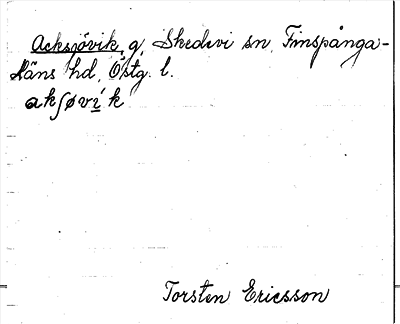 Acksjövik, g, Skedevi sn, Finspånga-
läns hd, Östg. l.
akʃøví̲k
Torsten Ericsson